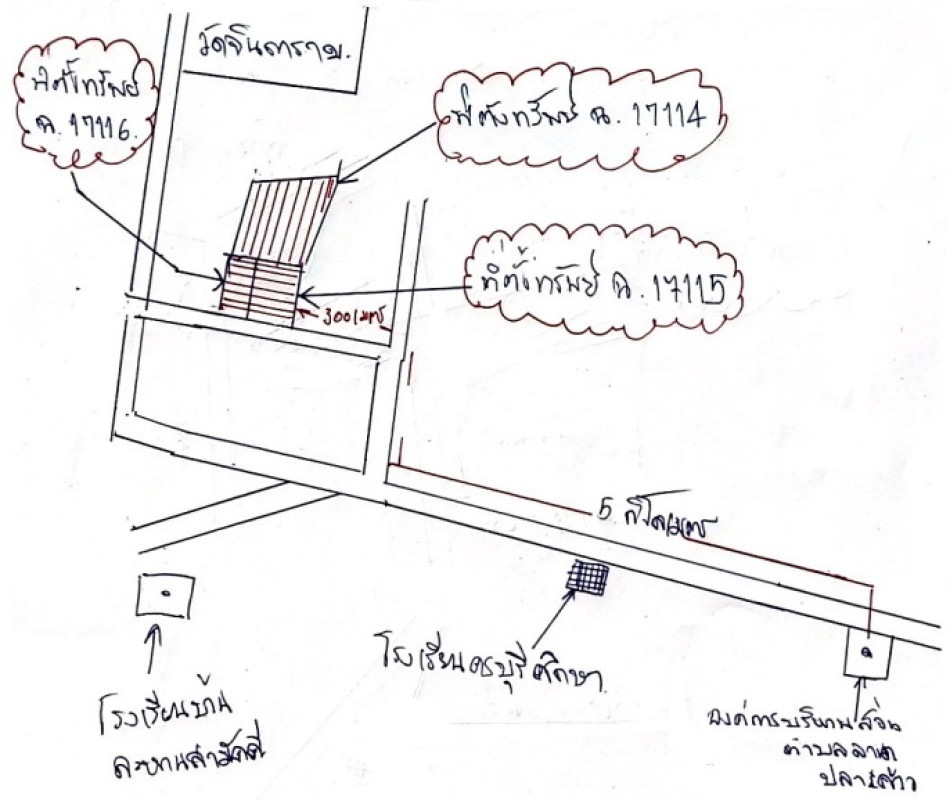 วัดจินดาราม.
ที่ตั้งทรัพย์
ฉ. 17116.
ที่ตั้งทรัพย์ ฉ. 17114
ที่ตั้งทรัพย์ ฉ. 17115
300 เมตร
5 กิโลเมตร
โรงเรียน บุรีศึกษา
โรงเรียนบ้าน
สามัคคี
องค์การบริหารส่วน
ตำบลลาด
ปลาเค้า